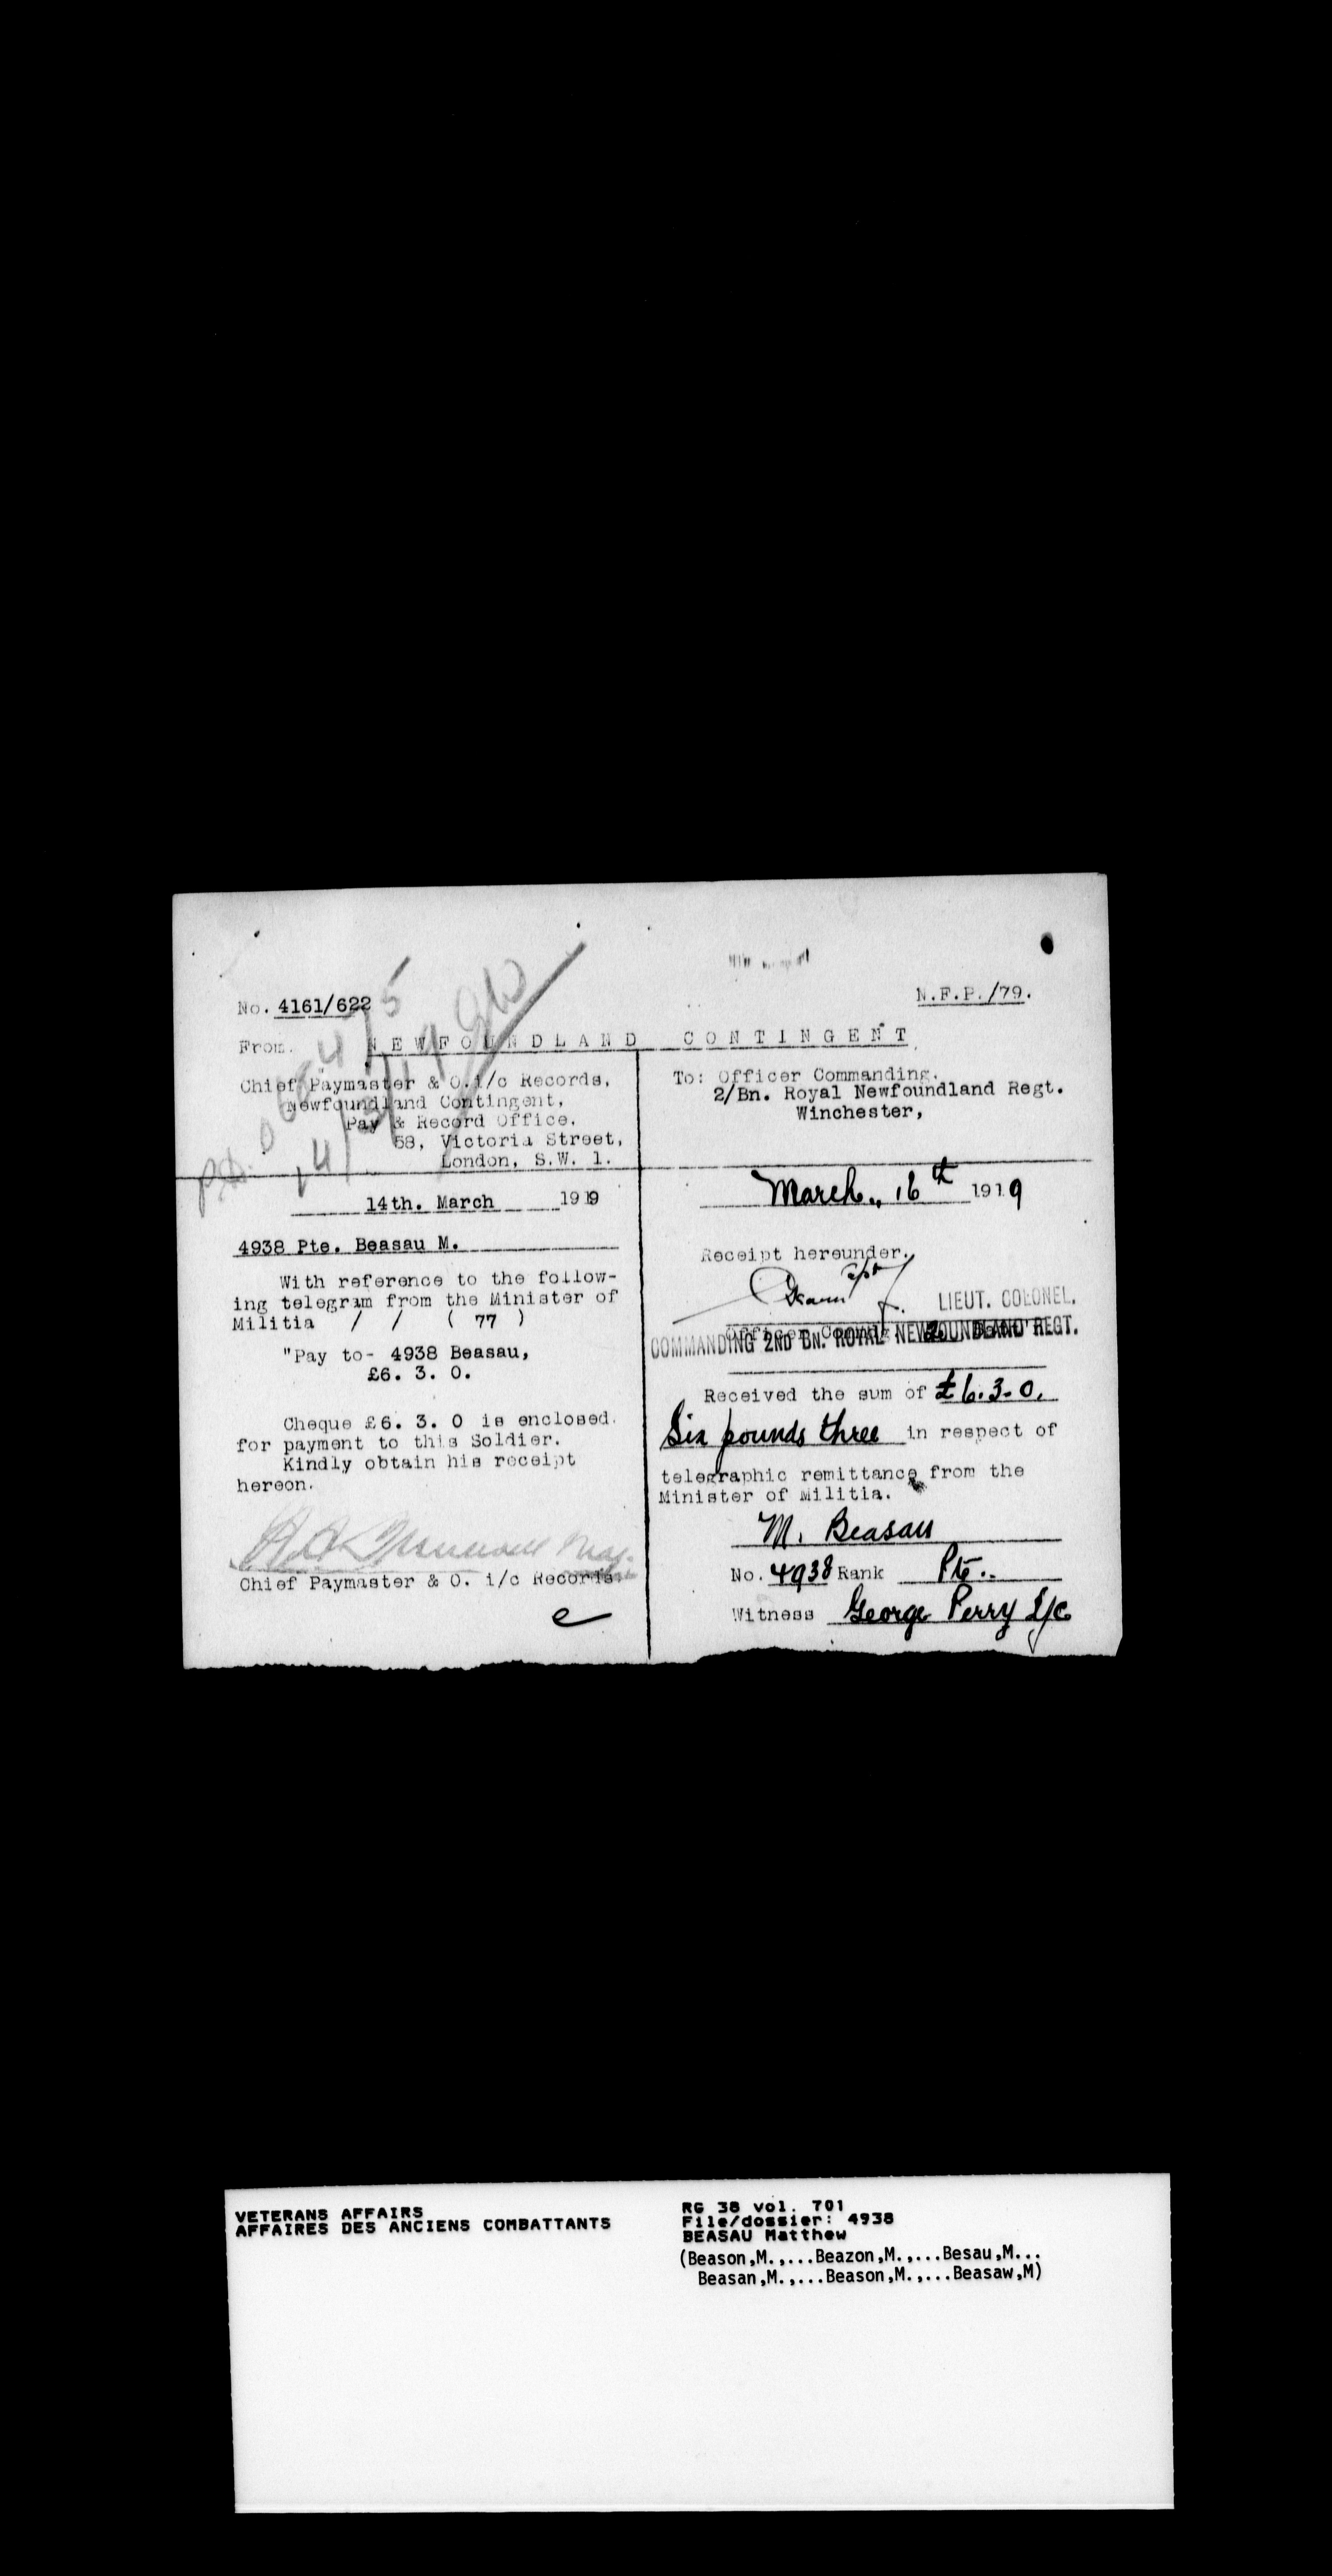 No. 4161/622
N.F.P./79.
NEWFOUNDLAND CONTINGENT
From.
Chief Paymaster & O. i/c Records,
Newfoundland Contingent,
Pay & Record Office.
58, Victoria Street,
London, S.W. 1.
14th. March 1919
4938 Pte. Beasau M.
With reference to the follow-
ing telegram from the Minister of
Militia / / ( 77 )
"Pay to- 4938 Beasau,
£6. 3. 0.
Cheque £6. 3. 0 is enclosed.
for payment to this Soldier.
Kindly obtain his receipt
hereon.
Chief Paymaster & O. i/c Records
To: Officer Commanding.
2/Bn. Royal Newfoundland Regt.
Winchester,
March., 16th 1919
Receipt hereunder.
LIEUT. COLONEL.
COMMANDING 2ND BN. ROYAL NEWFOUNDLAND REGT.
Received the sum of £6.3-0.
Six pounds three in respect of
telegraphic remittance from the
Minister of Militia.
M. Beasau
No. 4938 Rank Pte..
Witness George Perry L/c
VETERANS AFFAIRS
AFFAIRES DES ANCIENS COMBATTANTS
RG 38 vol. 701
File/dossier: 4938
BEASAU Matthew
(Beason,M.,...Beazon,M.,...Besau,M...
Beasan,M.,...Beason,M.,...Beasaw,M)